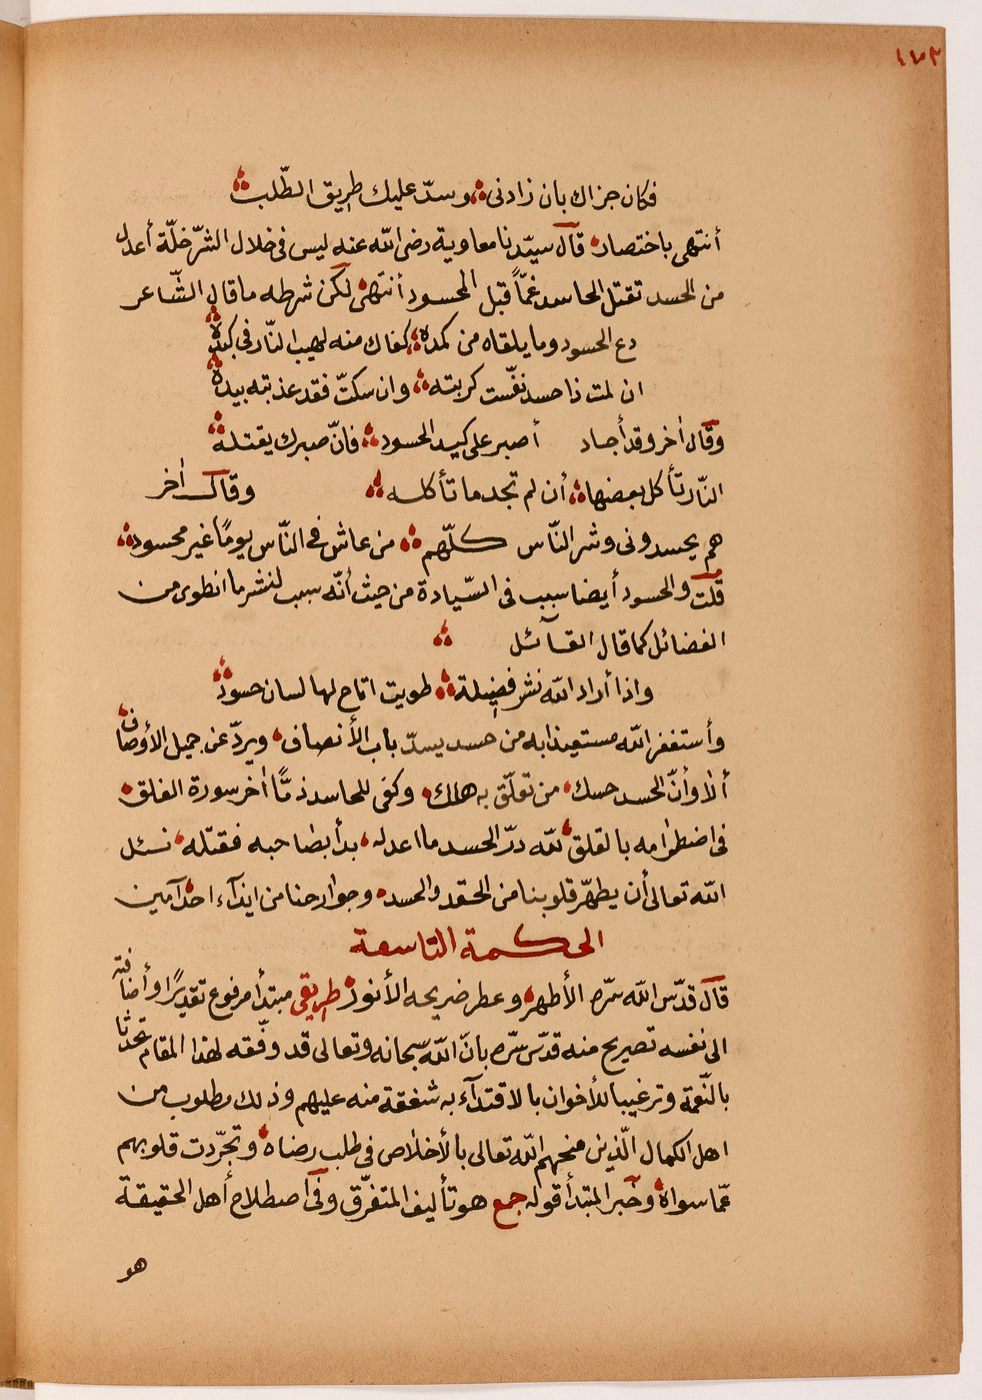 ١٧٢
فكان جزاك بان زادنى وسدّ عليك طريق الطّلب
أنتهى باختصار قال سيّدنا معاوية رضى الله عنه ليس فى خلال الشرّ خلّة أعدل
من الحسد تقتل الحاسد غمّاً قبل المحسود أنتهى لكن شرطه ما قال الشّاعر
دع الحسود وما يلقاه من كمده كفاك منه لهيب النّار فى كبده
ان لمت ذا حسد نفّست كربته وان سكتّ فقد عذبته بيده
وقال أخر وقد أجاد أصبر على كيد الحسود فانّ صبرك يقتله
النّار تأكل بعضها أن لم تجد ما تأكله وقال أخر
هم يحسدونى وشر النّاس كلّهم من عاش فى النّاس يومًا غير محسود
قلت والحسود أيضا سبب فى السّيادة من حيث أنّه سبب لنشر ما انطوى من
الفضائل كما قال القآئل
واذا أراد الله نشر فضيلة طويت اتاح لها لسان حسود
وأستغفر الله مستعيذا به من حسد يسدّ باب الأنصاف ويردّ عن جميل الأوصاف
ألا وأنّ الحسد حسك من تعلّق به هلك وكفى للحاسد ذمًّا أخر سورة الفلق
فى اضطرامه بالقلق لله درّ الحسد ما اعدله بدأ بصاحبه فقتله نسئل
الله تعالى أن يطهّر قلوبنا من الحقد والحسد وجوارحنا من ايذآء احد آمين
الحكمة التاسعة
قال قدّس الله سرّه الأطهر وعطر ضريحه الأنور طريقى مبتدأ مرفوع تقديرًا وأضافته
الى نفسه تصريح منه قدّس سرّه بانّ الله سبحانه وتعالى قد وفّقه لهذا المقام تحدثا
بالنّعمة وترغيبا للأخوان بالاقتدآء به شفقة منه عليهم وذلك مطلوب من
اهل الكمال الّذين منحهم الله تعالى بالأخلاص فى طلب رضاه وتجرّدت قلوبهم
عمّا سواه وخبر المبتدأ قوله جمع هو تأليف المتفرّق وفى اصطلاح أهل الحقيقة
هو